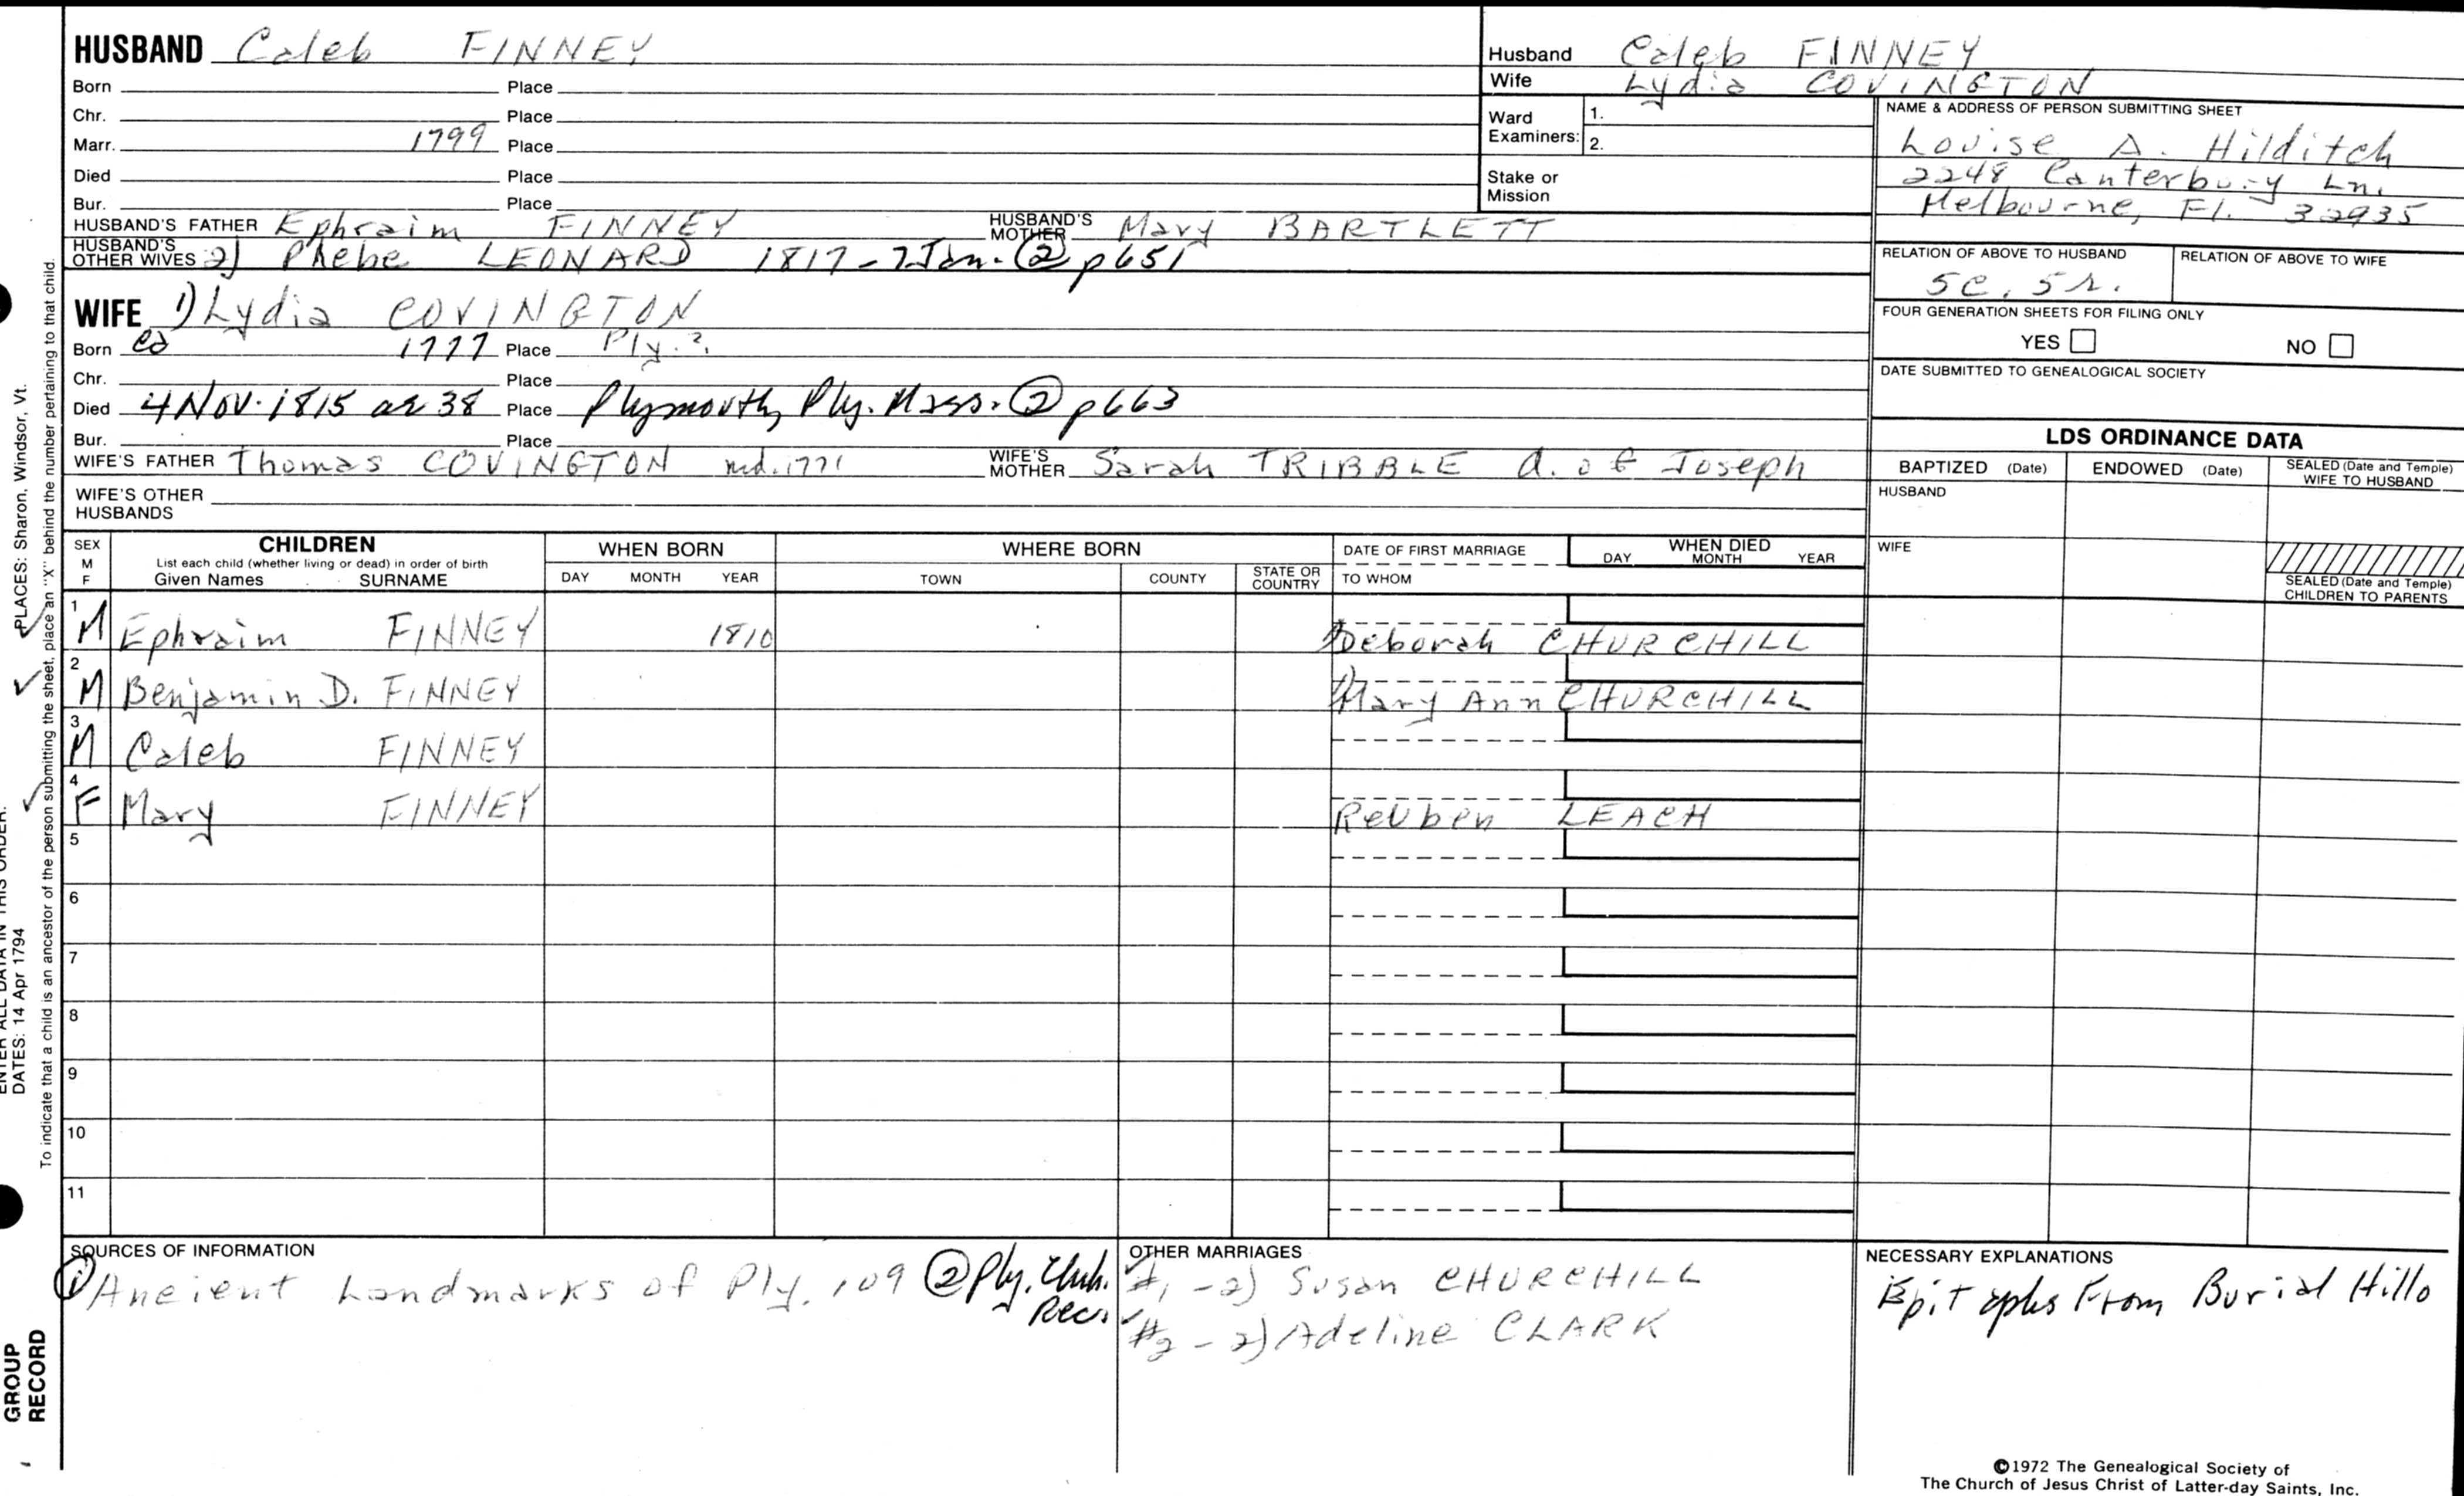 HUSBAND Caleb FINNEY
Born Place
Chr. Place
Marr. 1799 Place
Died Place
Bur. Place
HUSBAND'S FATHER Ephraim FINNEY HUSBAND'S MOTHER Mary BARTLETT
HUSBAND'S OTHER WIVES 2) Phebe LEONARD 1817-7Jan. ② p651
WIFE 1) Lydia COVINGTON
Born ca 1777 Place Ply.?
Chr. Place
Died 4 Nov. 1815 ae 38 Place Plymouth, Ply. Mass. ② p663
Bur. Place
WIFE'S FATHER Thomas COVINGTON md. 1771 WIFE'S MOTHER Sarah TRIBBLE d. of Joseph
WIFE'S OTHER HUSBANDS
Husband Caleb FINNEY
Wife Lydia COVINGTON
Ward Examiners: 1.
2.
Stake or Mission
NAME & ADDRESS OF PERSON SUBMITTING SHEET
Louise A. Hilditch
2248 Canterbury Ln.
Melbourne, Fl. 32935
RELATION OF ABOVE TO HUSBAND RELATION OF ABOVE TO WIFE
5c, 5r.
FOUR GENERATION SHEETS FOR FILING ONLY
YES NO
DATE SUBMITTED TO GENEALOGICAL SOCIETY
LDS ORDINANCE DATA
BAPTIZED (Date) ENDOWED (Date) SEALED (Date and Temple) WIFE TO HUSBAND
HUSBAND
WIFE
SEALED (Date and Temple) CHILDREN TO PARENTS
SEX M F CHILDREN List each child (whether living or dead) in order of birth Given Names SURNAME
WHEN BORN DAY MONTH YEAR
WHERE BORN TOWN COUNTY STATE OR COUNTRY
DATE OF FIRST MARRIAGE TO WHOM
WHEN DIED DAY MONTH YEAR
1 M Ephraim FINNEY 1810 1) Deborah CHURCHILL
2 M Benjamin D. FINNEY 1) Mary Ann CHURCHILL
3 M Caleb FINNEY
4 F Mary FINNEY Reuben LEACH
5
6
7
8
9
10
11
SOURCES OF INFORMATION
① Ancient Landmarks of Ply. 109 ② Ply. Chuh. Rec.
OTHER MARRIAGES
#1 - 2) Susan CHURCHILL
#2 - 2) Adeline CLARK
NECESSARY EXPLANATIONS
Epitaphs From Burial Hill
©1972 The Genealogical Society of
The Church of Jesus Christ of Latter-day Saints, Inc.
PLACES: Sharon, Windsor, Vt.
ENTER ALL DATA IN THIS ORDER:
DATES: 14 Apr 1794
To indicate that a child is an ancestor of the person submitting the sheet, place an "X" behind the number pertaining to that child.
GROUP
RECORD